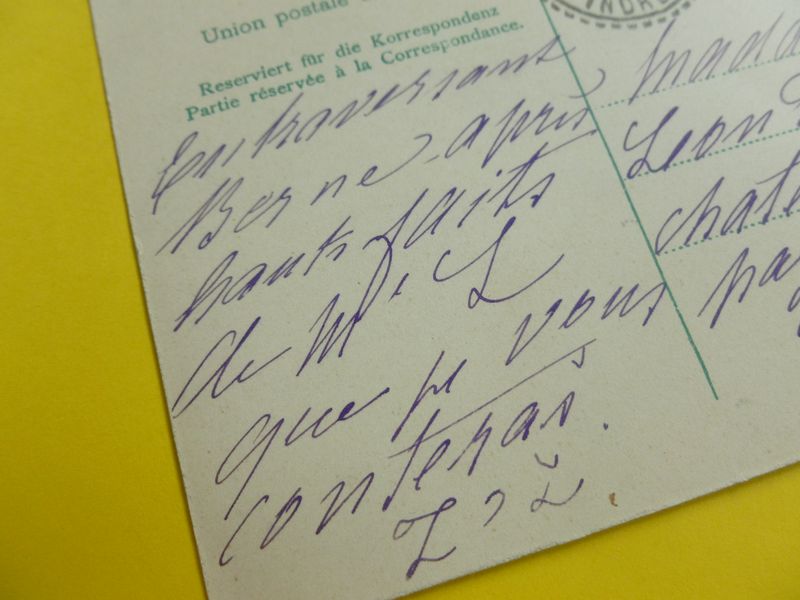 Union postale
INDRE
Reserviert für die Korrespondenz
Partie réservée à la Correspondance.
En traversant
Berne, après
hauts faits
de Mr L
que je vous
conterai.
Mada
Leon
chate